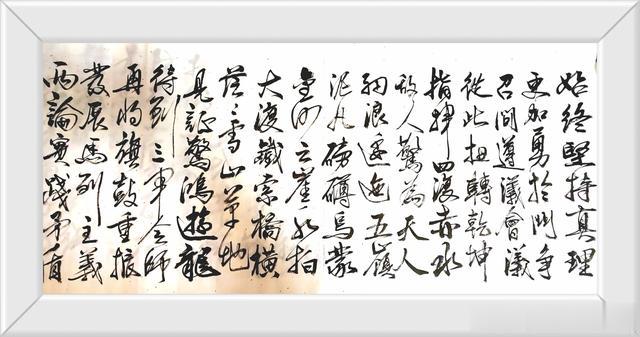 始終堅持真理
更加勇於鬥爭
召開遵議會議
從此扭轉乾坤
指揮四渡赤水
敌人驚為天人
細浪逶迤五嶺
泥丸磅礴烏蒙
金沙云崖水拍
大渡鐵索橋橫
茫茫雪山草地
見証驚鴻遊龍
待到三軍会師
再将旗鼓重振
發展馬列主義
兩論實踐矛盾